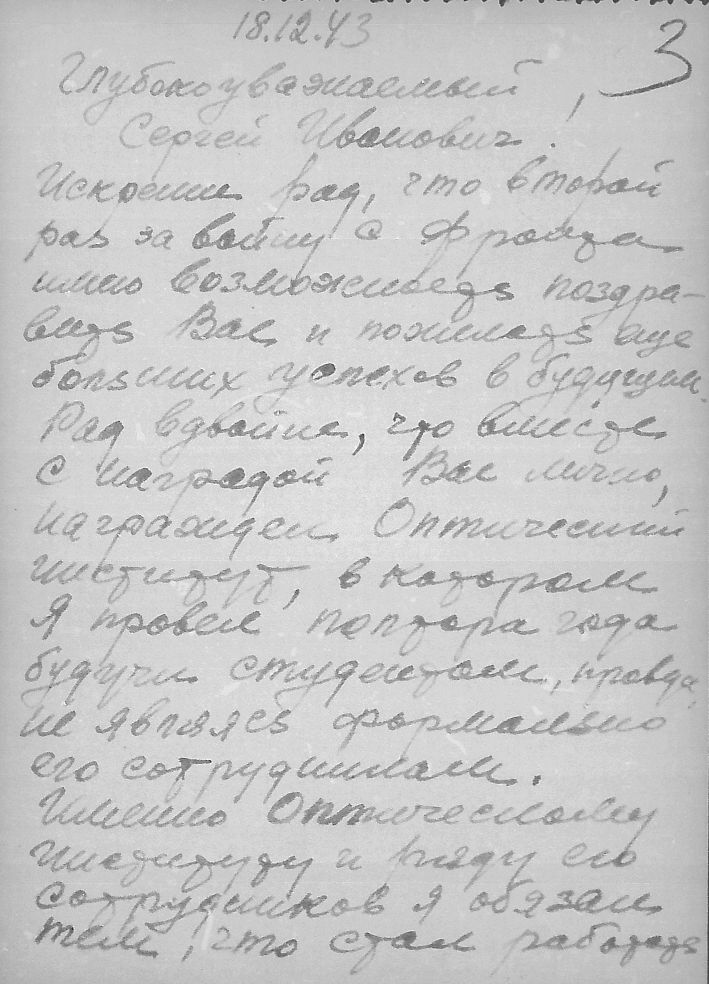 18.12.43
3
Глубокоуважаемый
Сергей Иванович!
Искренне рад, что второй
раз за войну с фронта
имею возможность поздра-
вить Вас и пожелать еще
больших успехов в будущем.
Рад вдвойне, что вместе
с наградой Вас лично,
награжден Оптический
институт, в котором
я провел полтора года
будучи студентом, правда,
не являясь формально
его сотрудником.
Именно Оптическому
институту и ряду его
сотрудников я обязан
тем, что стал работать